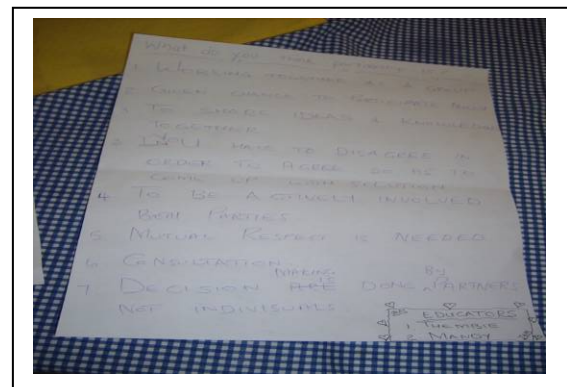 What do you think participation is?
1. WORKING TOGETHER AS A GROUP
2. GIVEN CHANCE TO PARTICIPATE
TO SHARE IDEAS & KNOWLEDGE
TOGETHER
3. HAVE TO DISAGREE IN
ORDER TO AGREE SO AS TO
COME UP WITH SOLUTION
4 TO BE ACTIVELY INVOLVED
BOTH PARTIES
5 MUTUAL RESPECT IS NEEDED
6 CONSULTATION
7 DECISION MAKING DONE BY PARTNERS
NOT INDIVISUALS
EDUCATORS
1. THEMBIE
2. MANDY